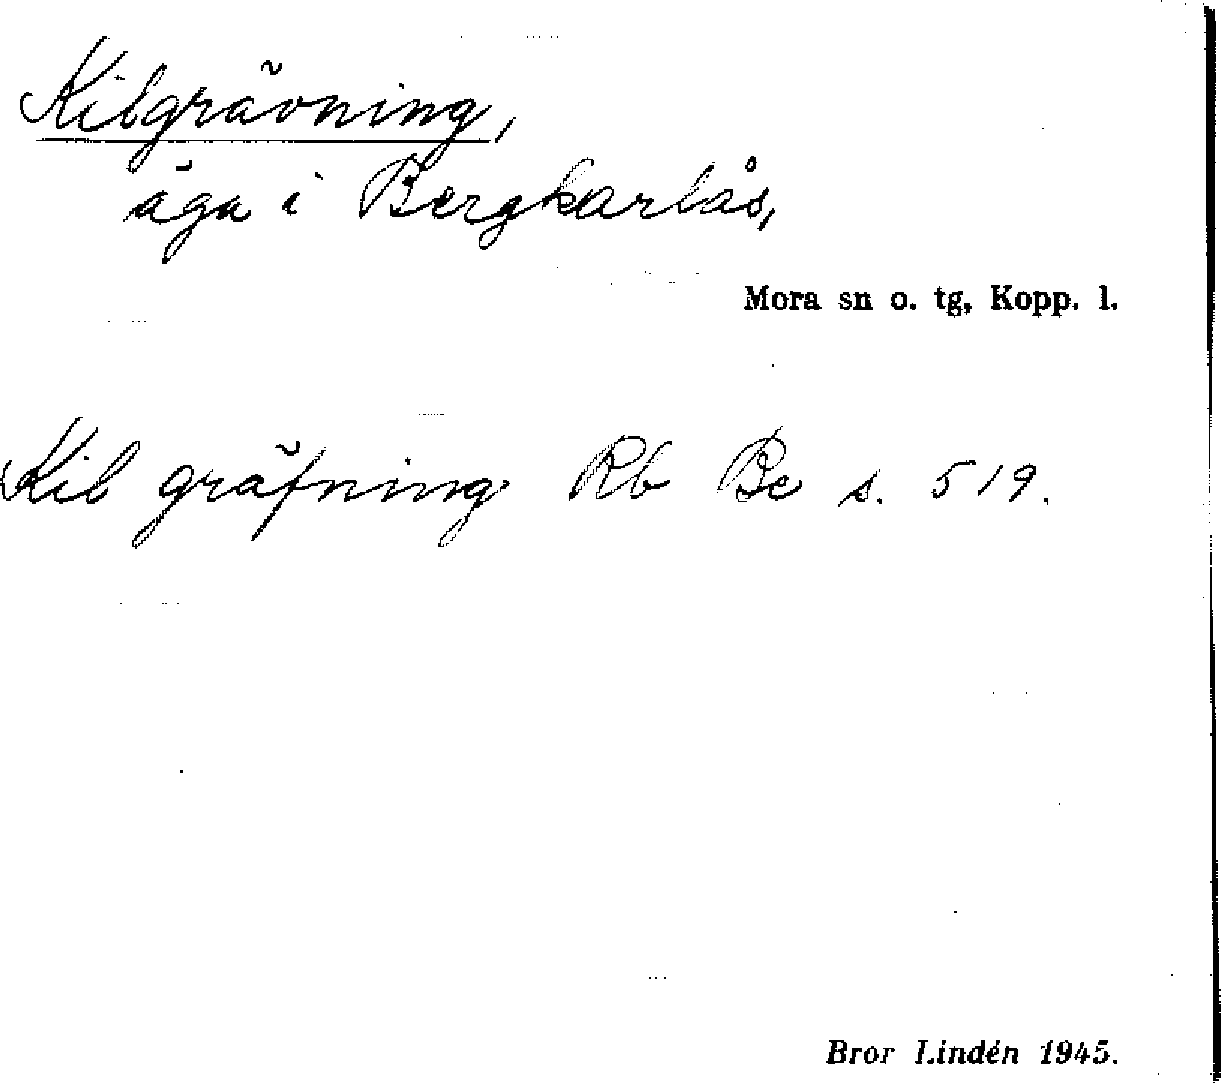 Kilgrävning,
äga i Bergkarlås,
Mora sn o. tg, Kopp. l.
Kil gräfning Rb Be s. 519.
Bror Lindén 1945.